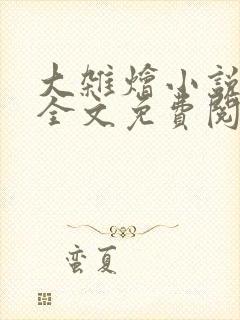 大雑燴小說
全文免費閱
蛮夏